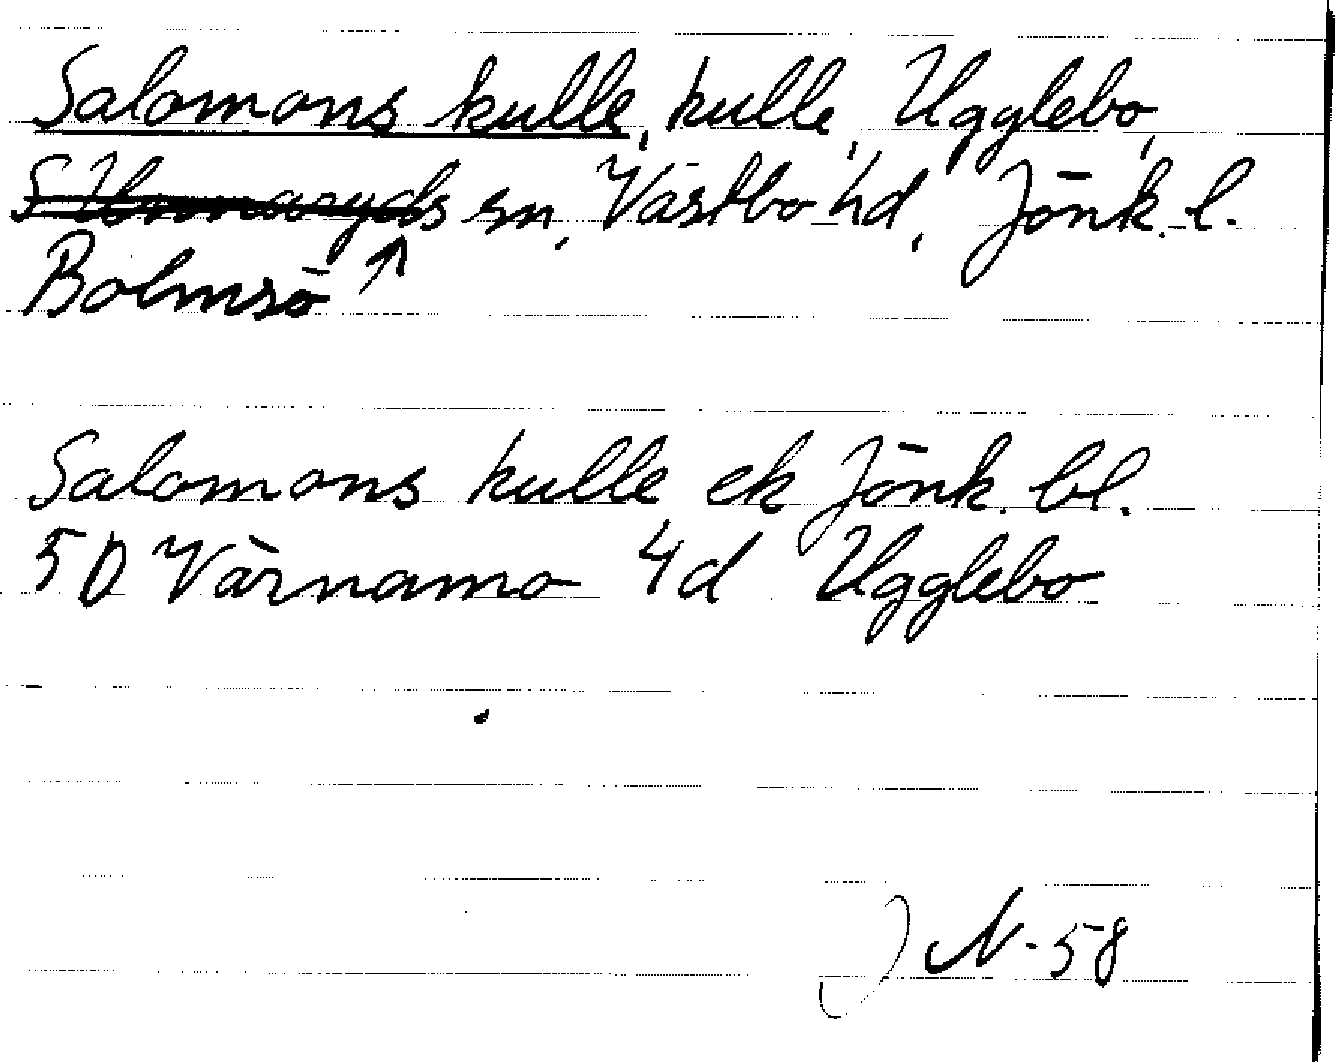 Salomons kulle, kulle, Ugglebo,
S Unnaryds sn, Västbo hd, Jönk. l.
Bolmsö ↑
Salomons kulle ek Jönk. bl.
5D Värnamo 4d Ugglebo
J N-58